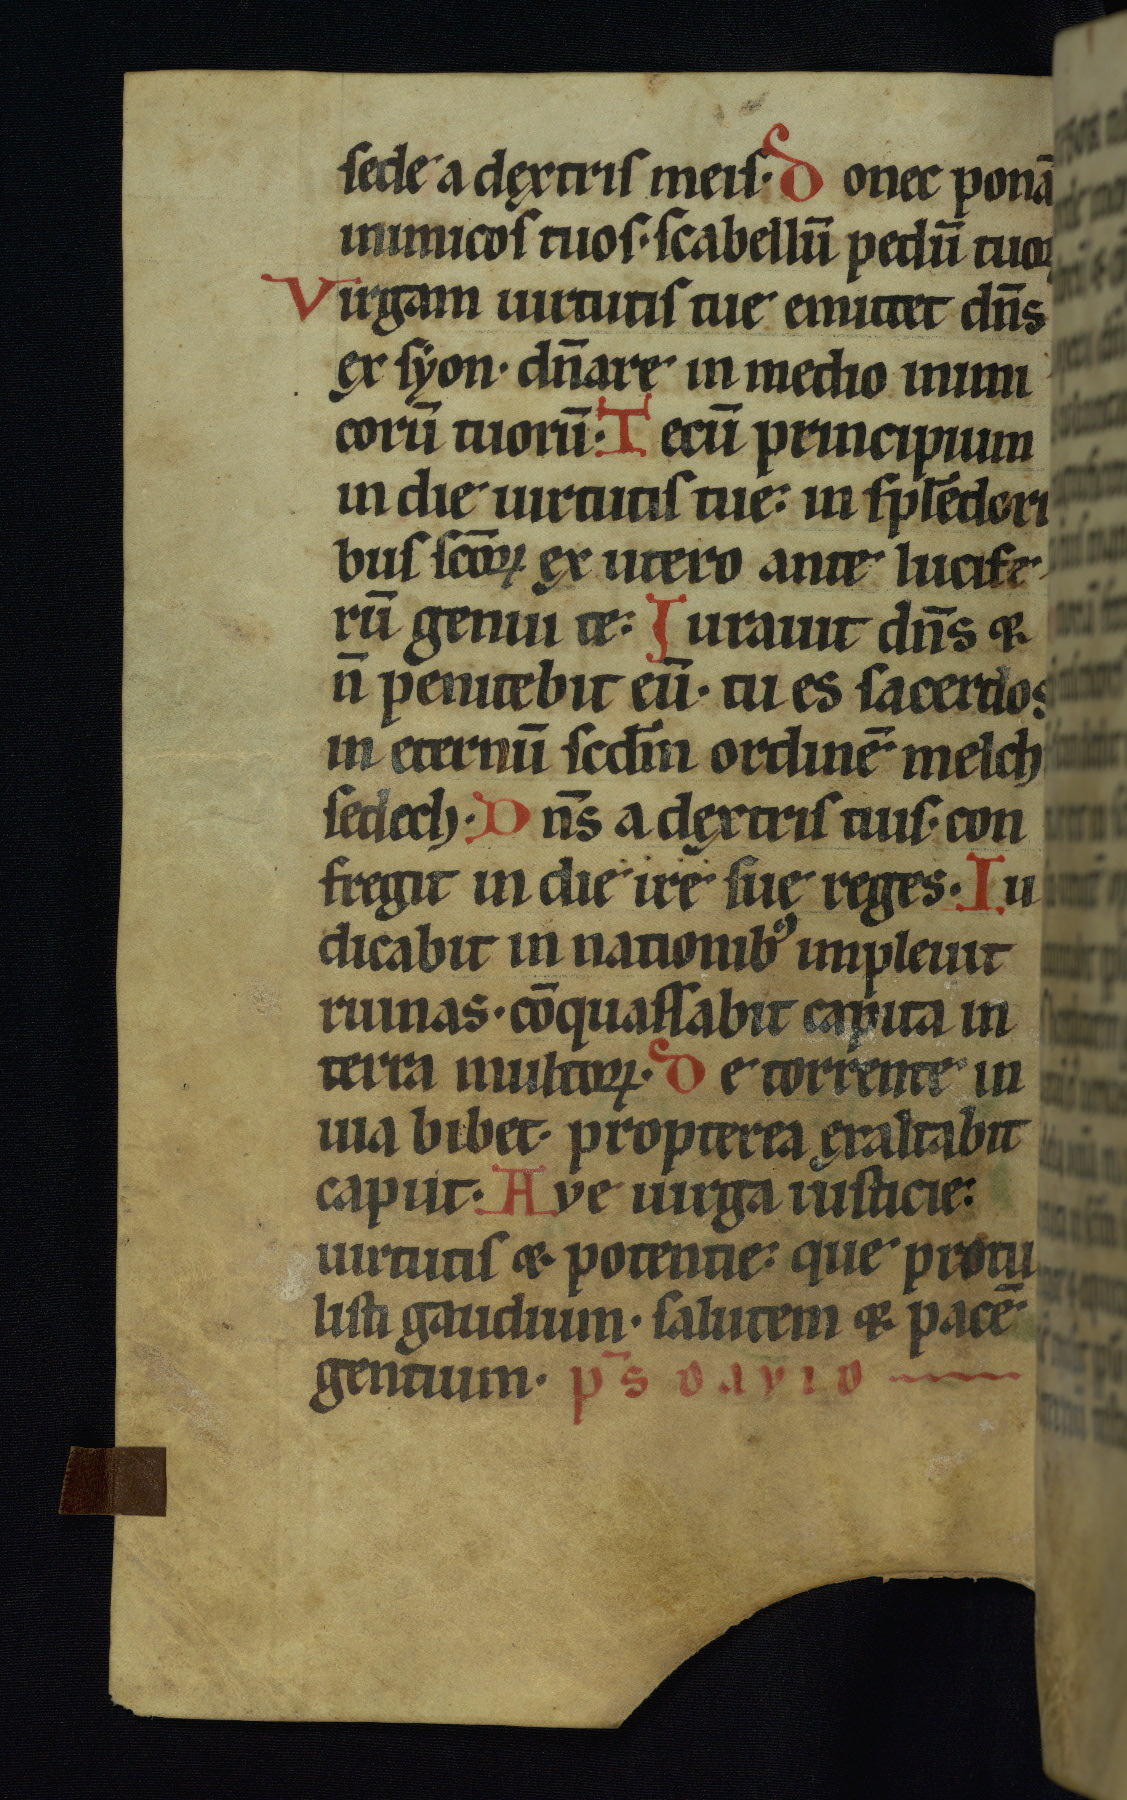 sede a dęxtris meis· Donec ponā
inimicos tuos· scabellū pedū tuoꝝ
Virgam uirtutis tue emittet dn̄s
ex syon· dn̄are in medio inimi
corū tuorū· Tecū principium
in die uirtutis tue: in splēdori
bus scōꝝ ex utero ante lucife
rū genui te: Jurauit dn̄s &
n̄ penitebit eū· tu es sacerdos
in eternū scdm̄ ordinē melch
sedech· Dn̄s a dęxtris tuis· con
fregit in die ire suę reges· Iu
dicabit in nationibꝰ impleuit
ruinas· cōquassabit capita in
terra multoꝝ· De torrente in
uia bibet· propterea ęxaltabit
caput· Ave uirga iusticie:
uirtutis & potentie: que protu
listi gaudium· salutem & pacē
gentium· p̄s DAVID